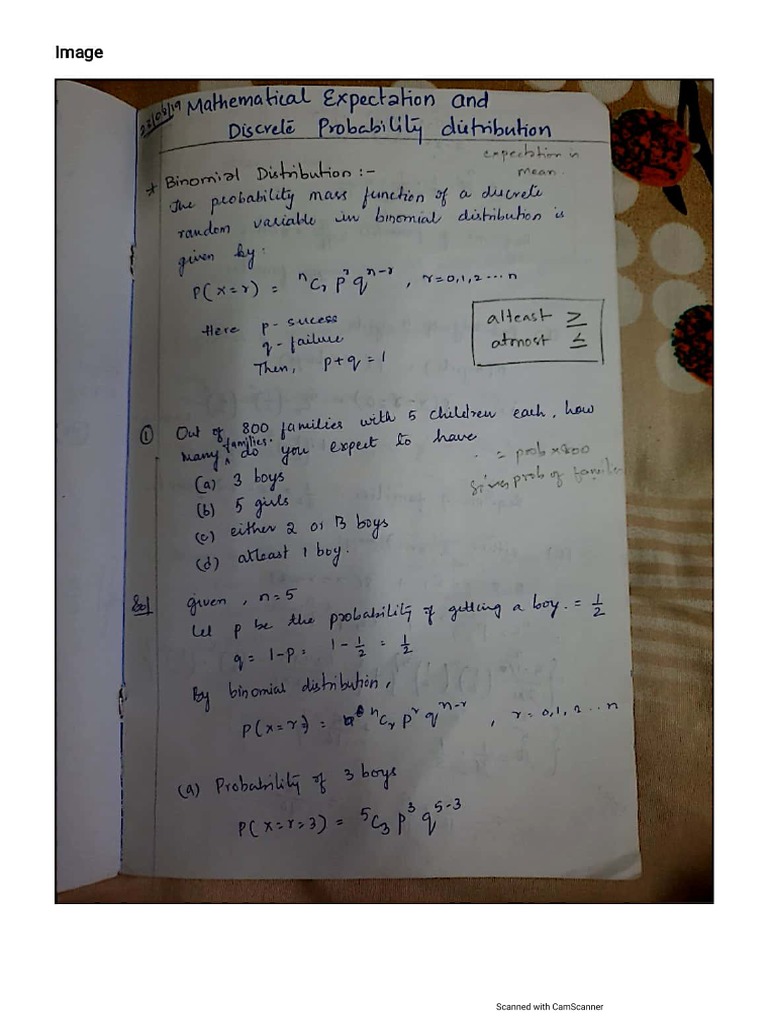 Image
22/08/19 Mathematical Expectation and
Discrete Probability distribution
expectation is
mean.
* Binomial Distribution :-
The probability mass function of a discrete
random variable in binomial distribution is
given by:
P(x=r) = ⁿCᵣ pʳ qⁿ⁻ʳ , r=0,1,2 ... n
Here p - sucess
q - failure
Then, p+q = 1
atleast ≥
atmost ≤
① Out of 800 families with 5 children each, how
many families. do you expect to have
= prob × 800
prob of families
(a) 3 boys
(b) 5 girls
(c) either 2 or 3 boys
(d) atleast 1 boy.
Sol given, n=5
Let p be the probability of getting a boy. = 1/2
q = 1-p = 1 - 1/2 = 1/2
By binomial distribution,
P(x=r) = ⁿCᵣ pʳ qⁿ⁻ʳ , r = 0,1,2 ... n
(a) Probability of 3 boys
P(x=r=3) = ⁵C₃ p³ q⁵⁻³
Scanned with CamScanner